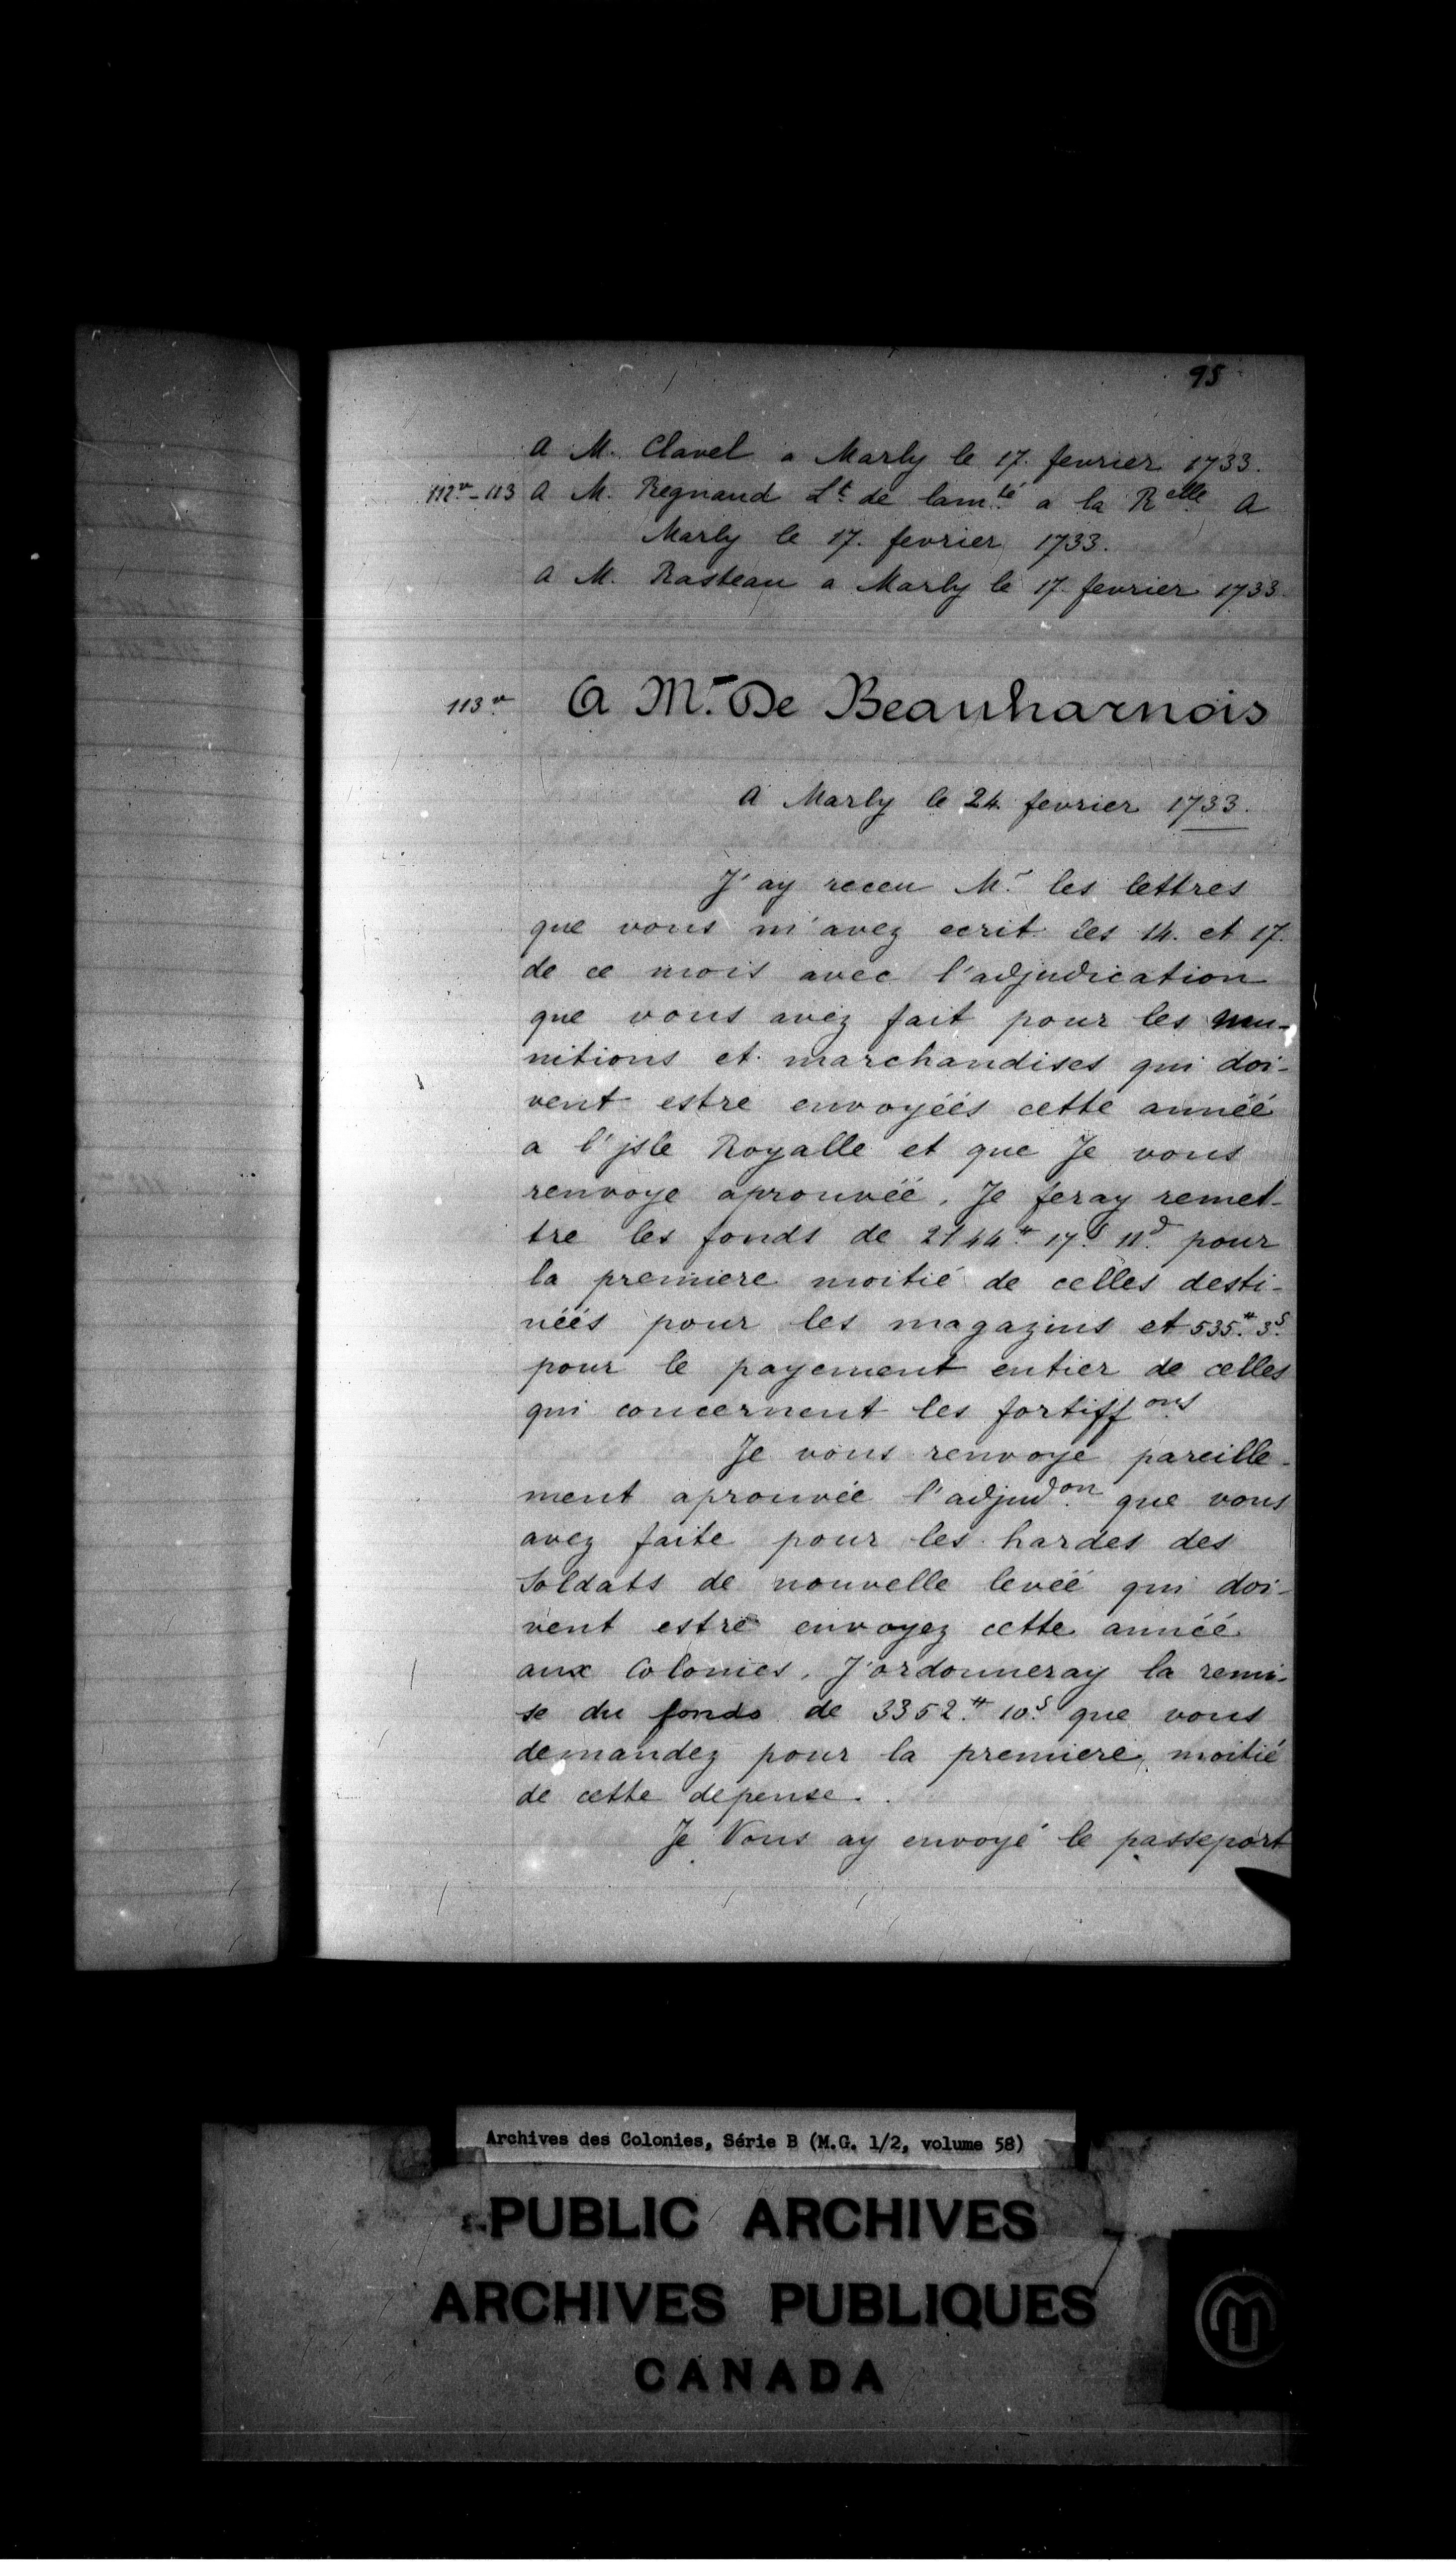 95
A M. Clavel a Marly le 17. fevrier 1733.
112v-113 A M. Regnaud Lt. de lamté a la Relle A
Marly le 17. fevrier 1733.
A M. Rasteau a Marly le 17 fevrier 1733
113v A Mr. De Beauharnois
A Marly le 24 fevrier 1733.
J'ay receu Mr. les lettres
que vous m'avez ecrit les 14. et 17.
de ce mois avec l'adjudication
que vous avez fait pour les mu-
nitions et marchandises qui doi-
vent estre envoyéés cette annéé
a l'jsle Royalle et que Je vous
renvoye aprouvéé. Je feray remet-
tre les fonds de 2144.# 17.s 11.d pour
la premiere moitié de celles desti-
néés pour les magazins et 535.# 3.s
pour le payement entier de celles
qui concernent les fortiffons
Je vous renvoye pareille-
ment aprouvée l'adjudon. que vous
avez faite pour les hardes des
Soldats de nouvelle levéé qui doi-
vent estre envoyez cette annéé
aux Colonies. J'ordonneray la remi-
se du fonds de 3352.# 10.s que vous
demandez pour la premiere moitié
de cette depense.
Je Vous ay envoyé le passeport
Archives des Colonies, Série B (M.G. 1/2, volume 58)
PUBLIC ARCHIVES
ARCHIVES PUBLIQUES
CANADA